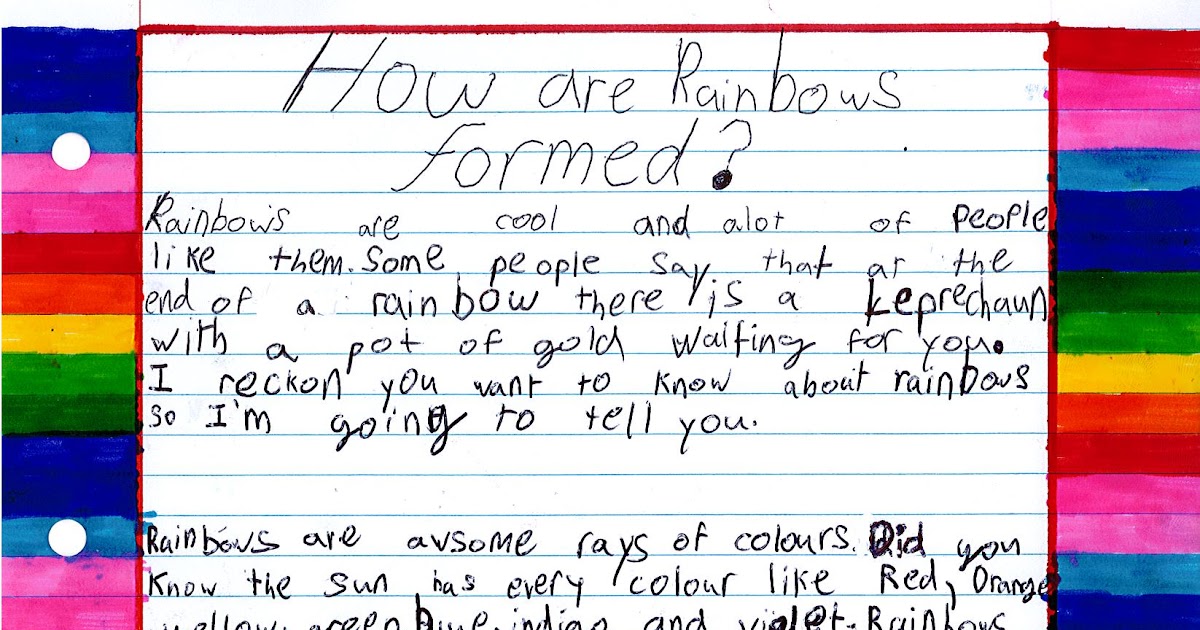 How are Rainbows
formed?
Rainbows are cool and alot of people
like them. Some people say that at the
end of a rainbow there is a Leprechaun
with a pot of gold waiting for you.
I reckon you want to know about rainbows
so I'm going to tell you.
Rainbows are avsome rays of colours. Did you
Know the sun has every colour like Red, Orange
yellow, green, blue, indigo and violet. Rainbows